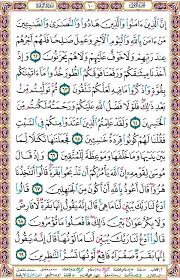 إِنَّ ٱلَّذِينَ ءَامَنُوا۟ وَٱلَّذِينَ هَادُوا۟ وَٱلنَّصَـٰرَىٰ وَٱلصَّـٰبِـِٔينَ
مَنْ ءَامَنَ بِٱللَّهِ وَٱلْيَوْمِ ٱلْـَٔاخِرِ وَعَمِلَ صَـٰلِحًا فَلَهُمْ أَجْرُهُمْ
عِندَ رَبِّهِمْ وَلَا خَوْفٌ عَلَيْهِمْ وَلَا هُمْ يَحْزَنُونَ ٦٢ وَإِذْ
أَخَذْنَا مِيثَـٰقَكُمْ وَرَفَعْنَا فَوْقَكُمُ ٱلطُّورَ خُذُوا۟ مَآ ءَاتَيْنَـٰكُم
بِقُوَّةٍ وَٱذْكُرُوا۟ مَا فِيهِ لَعَلَّكُمْ تَتَّقُونَ ٦٣ ثُمَّ تَوَلَّيْتُم مِّنۢ
بَعْدِ ذَٰلِكَ فَلَوْلَا فَضْلُ ٱللَّهِ عَلَيْكُمْ وَرَحْمَتُهُۥ لَكُنتُم مِّنَ
ٱلْخَـٰسِرِينَ ٦٤ وَلَقَدْ عَلِمْتُمُ ٱلَّذِينَ ٱعْتَدَوْا۟ مِنكُمْ فِى ٱلسَّبْتِ
فَقُلْنَا لَهُمْ كُونُوا۟ قِرَدَةً خَـٰسِـِٔينَ ٦٥ فَجَعَلْنَـٰهَا نَكَـٰلًا لِّمَا
بَيْنَ يَدَيْهَا وَمَا خَلْفَهَا وَمَوْعِظَةً لِّلْمُتَّقِينَ ٦٦ وَإِذْ قَالَ
مُوسَىٰ لِقَوْمِهِۦٓ إِنَّ ٱللَّهَ يَأْمُرُكُمْ أَن تَذْبَحُوا۟ بَقَرَةً قَالُوٓا۟ أَتَتَّخِذُنَا
هُزُوًا قَالَ أَعُوذُ بِٱللَّهِ أَنْ أَكُونَ مِنَ ٱلْجَـٰهِلِينَ ٦٧ قَالُوا۟
ٱدْعُ لَنَا رَبَّكَ يُبَيِّن لَّنَا مَا هِىَ قَالَ إِنَّهُۥ يَقُولُ إِنَّهَا بَقَرَةٌ لَّا فَارِضٌ
وَلَا بِكْرٌ عَوَانٌۢ بَيْنَ ذَٰلِكَ فَٱفْعَلُوا۟ مَا تُؤْمَرُونَ ٦٨
قَالُوا۟ ٱدْعُ لَنَا رَبَّكَ يُبَيِّن لَّنَا مَا لَوْنُهَا قَالَ إِنَّهُۥ يَقُولُ
إِنَّهَا بَقَرَةٌ صَفْرَآءُ فَاقِعٌ لَّوْنُهَا تَسُرُّ ٱلنَّـٰظِرِينَ ٦٩